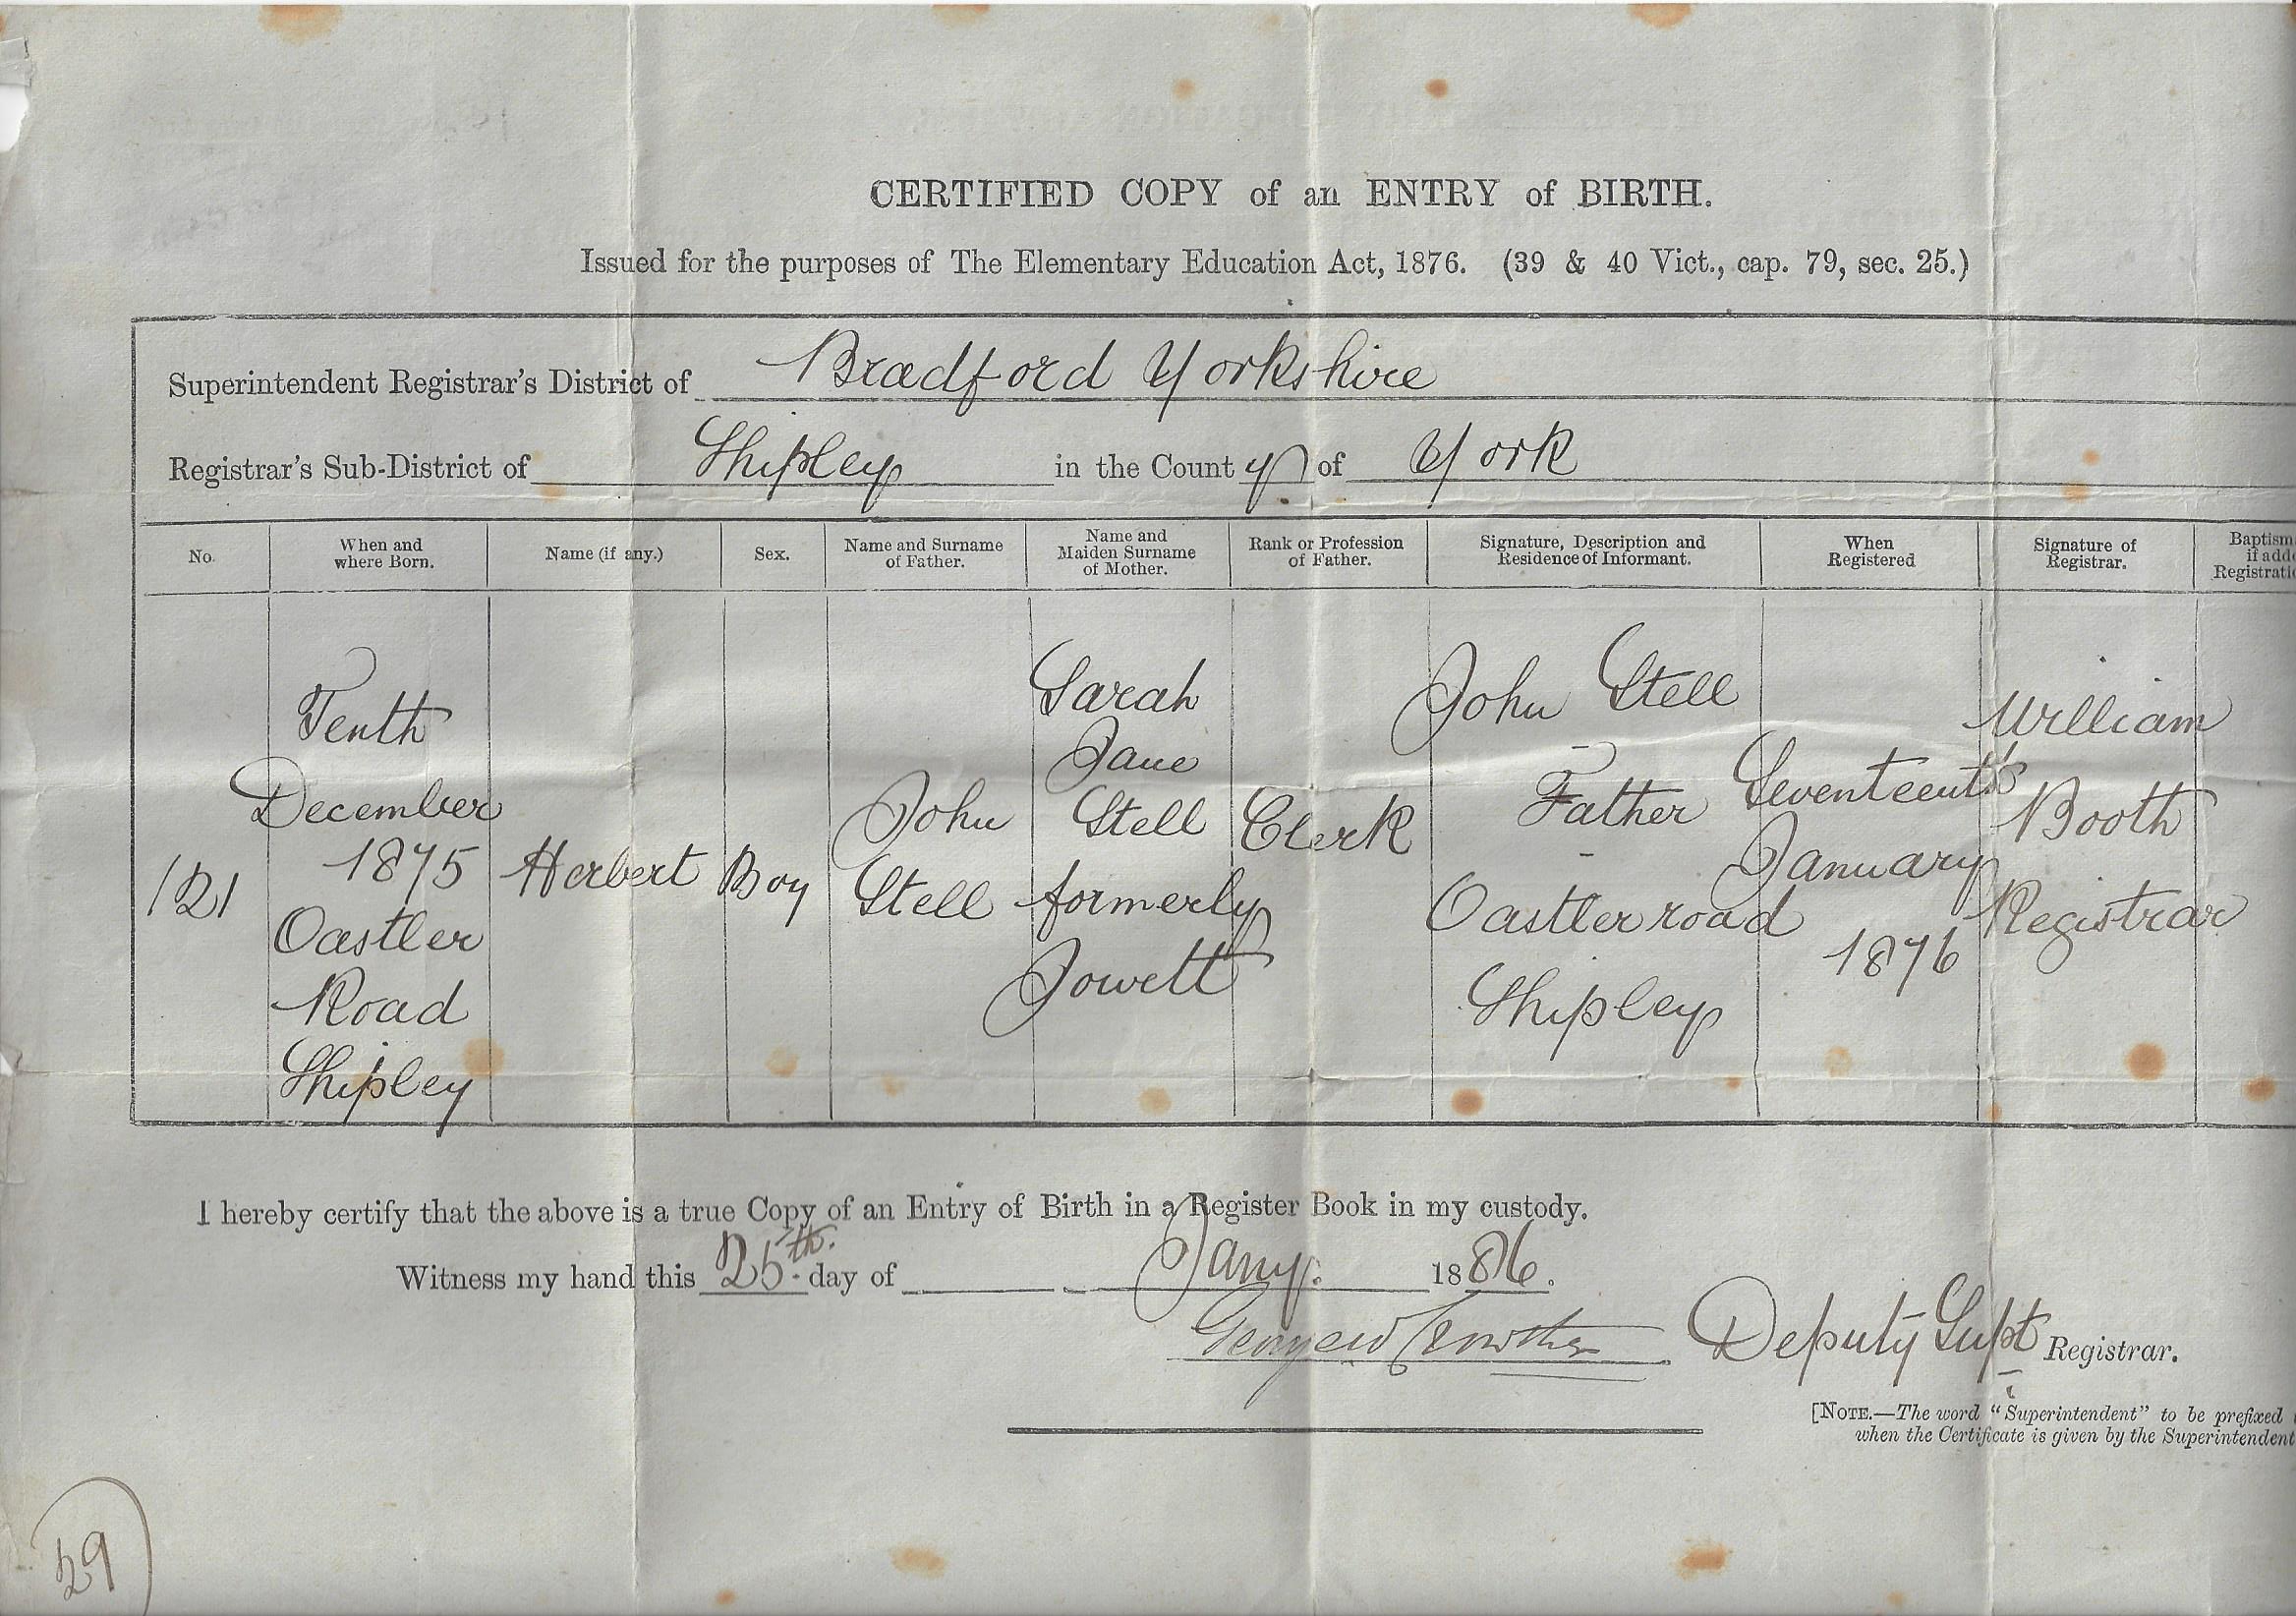 CERTIFIED COPY of an ENTRY of BIRTH.
Issued for the purposes of The Elementary Education Act, 1876. (39 & 40 Vict., cap. 79, sec. 25.)
Superintendent Registrar's District of Bradford Yorkshire
Registrar's Sub-District of Shipley in the County of York
No.
When and
where Born.
Name (if any.)
Sex.
Name and Surname
of Father.
Name and
Maiden Surname
of Mother.
Rank or Profession
of Father.
Signature, Description and
Residence of Informant.
When
Registered
Signature of
Registrar.
Baptism
if adde
Registratio
121
Tenth
December
1875
Oastler
Road
Shipley
Herbert
Boy
John
Stell
Sarah
Jane
Stell
formerly
Jowett
Clerk
John Stell
Father
Oastler road
Shipley
Seventeenth
January
1876
William
Booth
Registrar
I hereby certify that the above is a true Copy of an Entry of Birth in a Register Book in my custody.
Witness my hand this 25th. day of Jany. 1886.
George W Crowther Deputy Supt Registrar.
[NOTE.—The word "Superintendent" to be prefixed
when the Certificate is given by the Superintendent
29